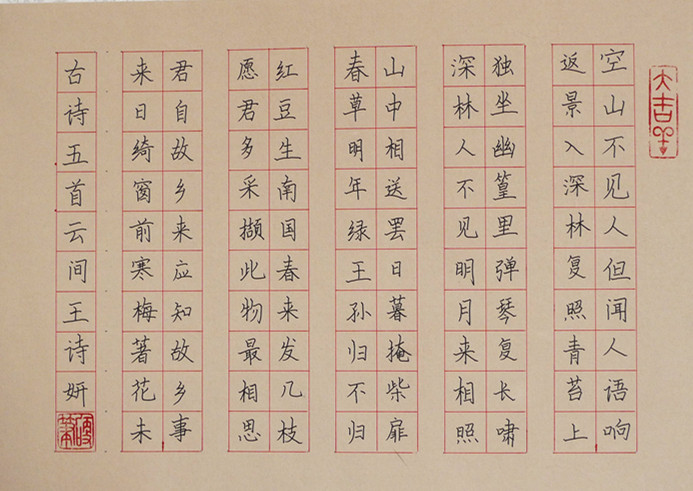 空山不见人但闻人语响
返景入深林复照青苔上
独坐幽篁里弹琴复长啸
深林人不见明月来相照
山中相送罢日暮掩柴扉
春草明年绿王孙归不归
红豆生南国春来发几枝
愿君多采撷此物最相思
君自故乡来应知故乡事
来日绮窗前寒梅著花未
古诗五首云间王诗妍